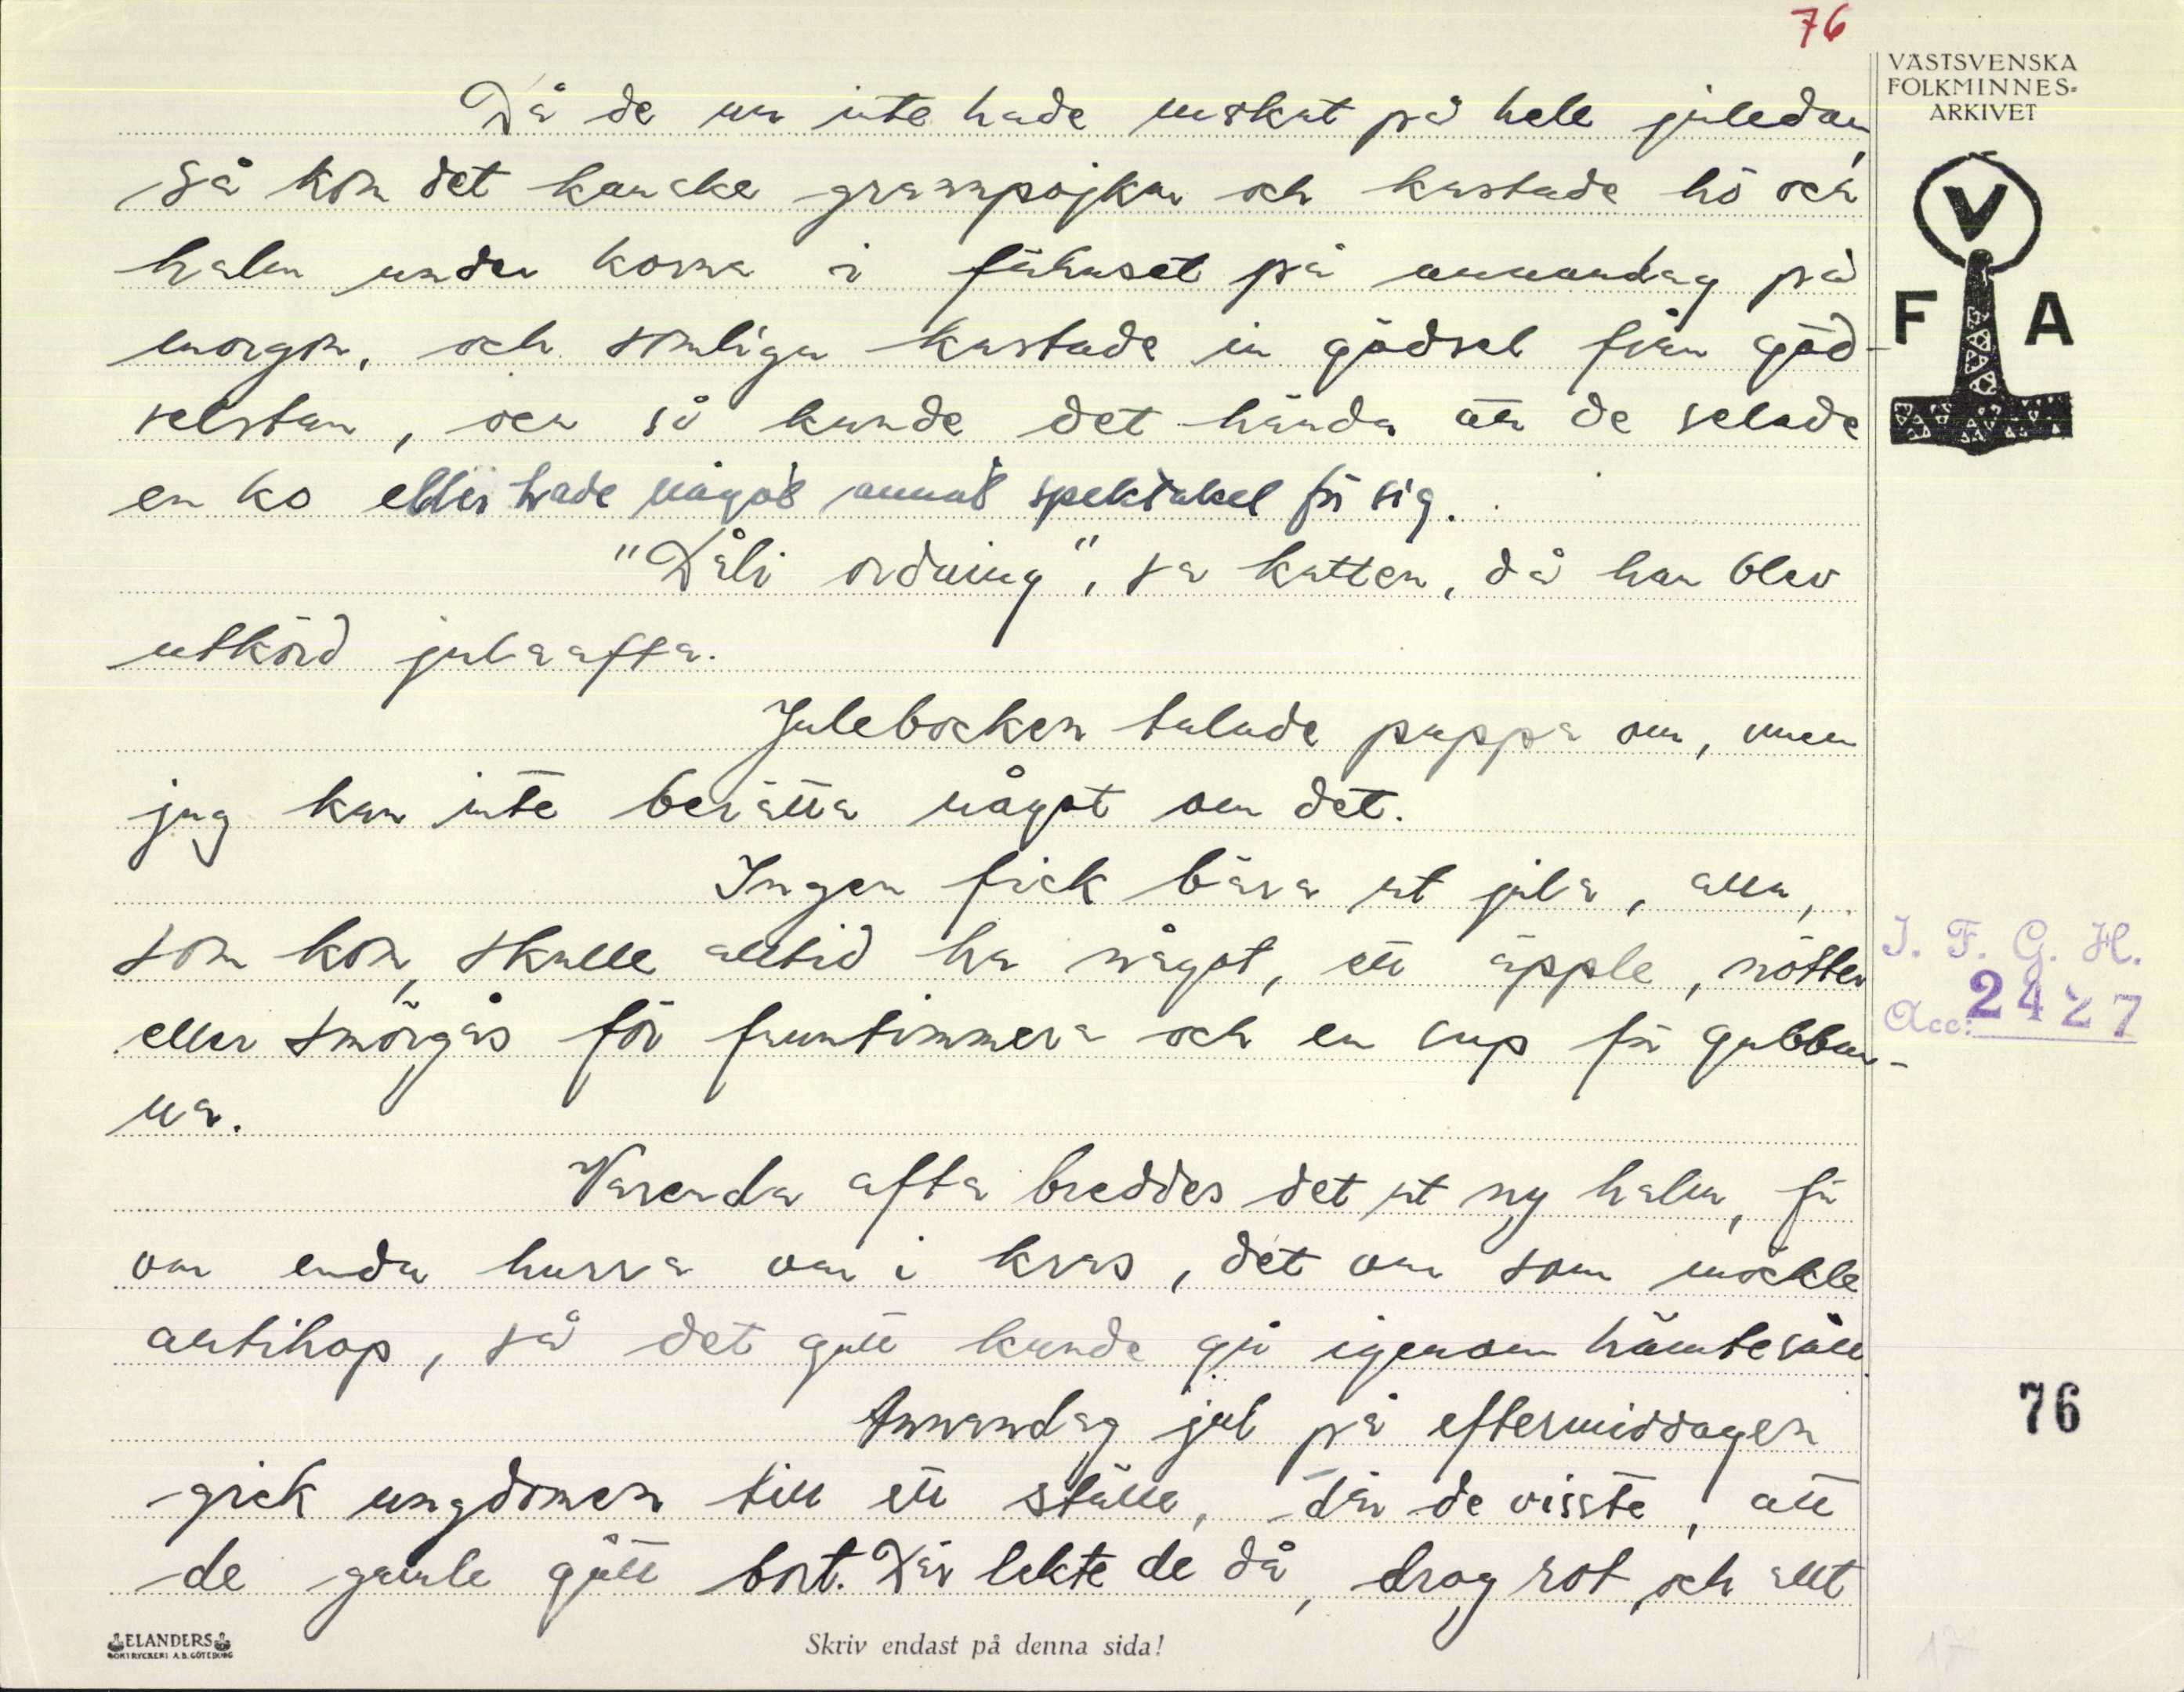 76
VÄSTSVENSKA
FOLKMINNES-
ARKIVET
Då de nu inte hade mokat på hele juledan,
så kom det kanske grannpojkar och kastade hö och
halm under korna i fähuset på annandag på
morgon, och somliga kastade in gödsel från göd-
selstan, och så kunde det hända att de selade
en ko eller hade något annat spektakel för sig.
"Dåli ordning", sa katten, då han blev
utkörd julaafta.
Julebocken talade pappa om, men
jag kan inte berätta något om det.
Ingen fick bära ut jula, alla,
som kom, skulle alltid ha något, ett äpple, nötter
eller smörgås för fruntimmera och en sup för gubbar-
na.
Varenda afta breddes det ut ny halm, för
om enda hurra om i kras, det om som möckle
alltihop, så det gott kunde gå igenom
Annandag jul på eftermiddagen
gick ungdomen till ett ställe, där de visste, att
de gamle gått bort. Där lekte de då, drog rot och allt
V
F A
I. F. G. H.
Acc: 2427
76
ELANDERS
BOKTRYCKERI A.B. GÖTEBORG
Skriv endast på denna sida!